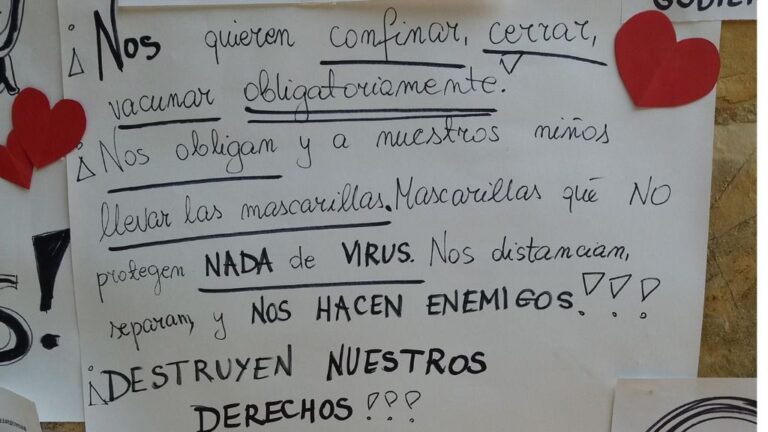 ¡Nos quieren confinar, cerrar,
vacunar obligatoriamente!
¡Nos obligan y a nuestros niños
llevar las mascarillas. Mascarillas que NO
protegen NADA de VIRUS. Nos distancian,
separan, y NOS HACEN ENEMIGOS!!!
¡DESTRUYEN NUESTROS
DERECHOS!!!